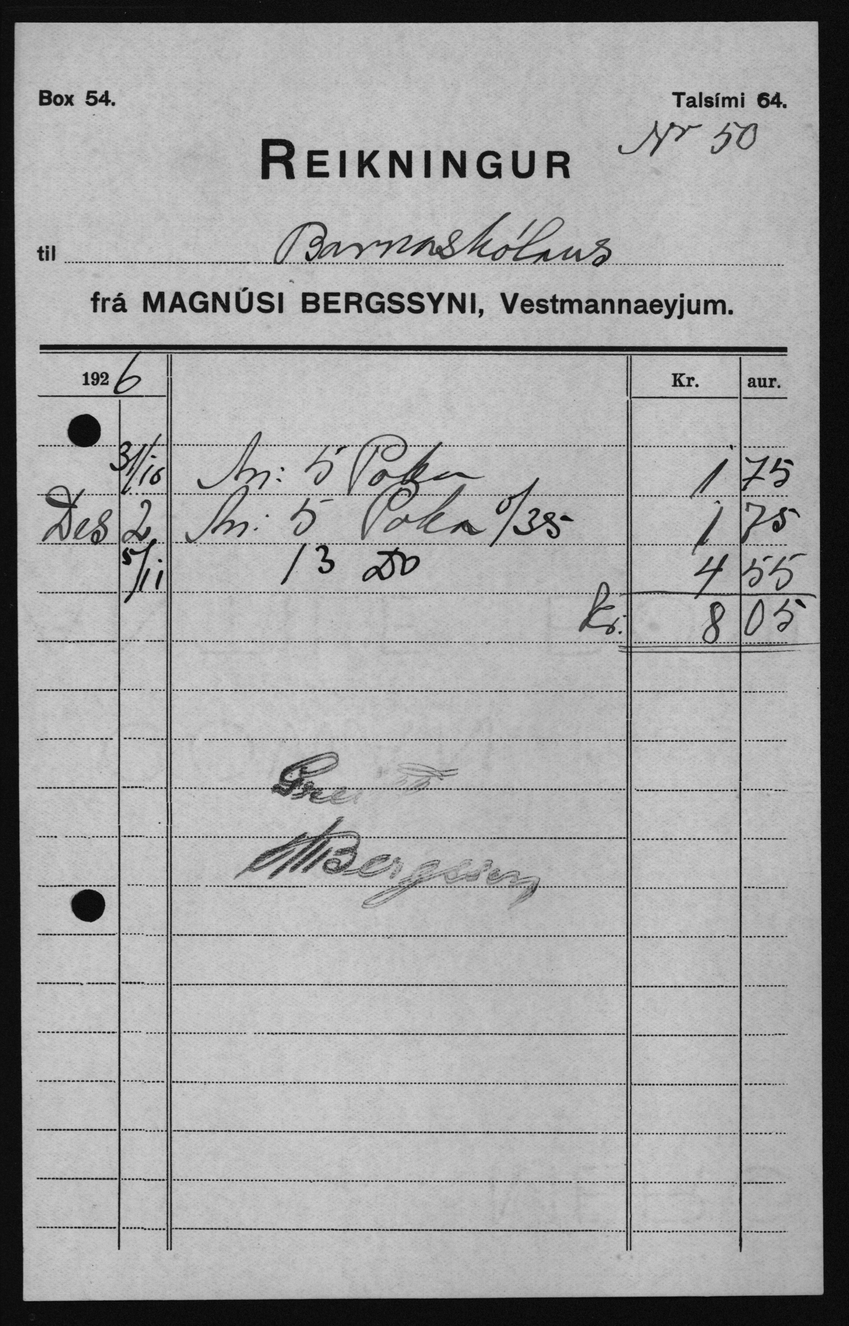 Box 54.
Talsími 64.
Nr 50
REIKNINGUR
til Barnaskólans
frá MAGNÚSI BERGSSYNI, Vestmannaeyjum.
1926 Kr. aur.
31/10 An: 5 Poka 1 75
Des 2 An: 5 Poka 0/35 1 75
5/11 13 Do 4 55
Kr. 8 05
Greitt
MBergsson